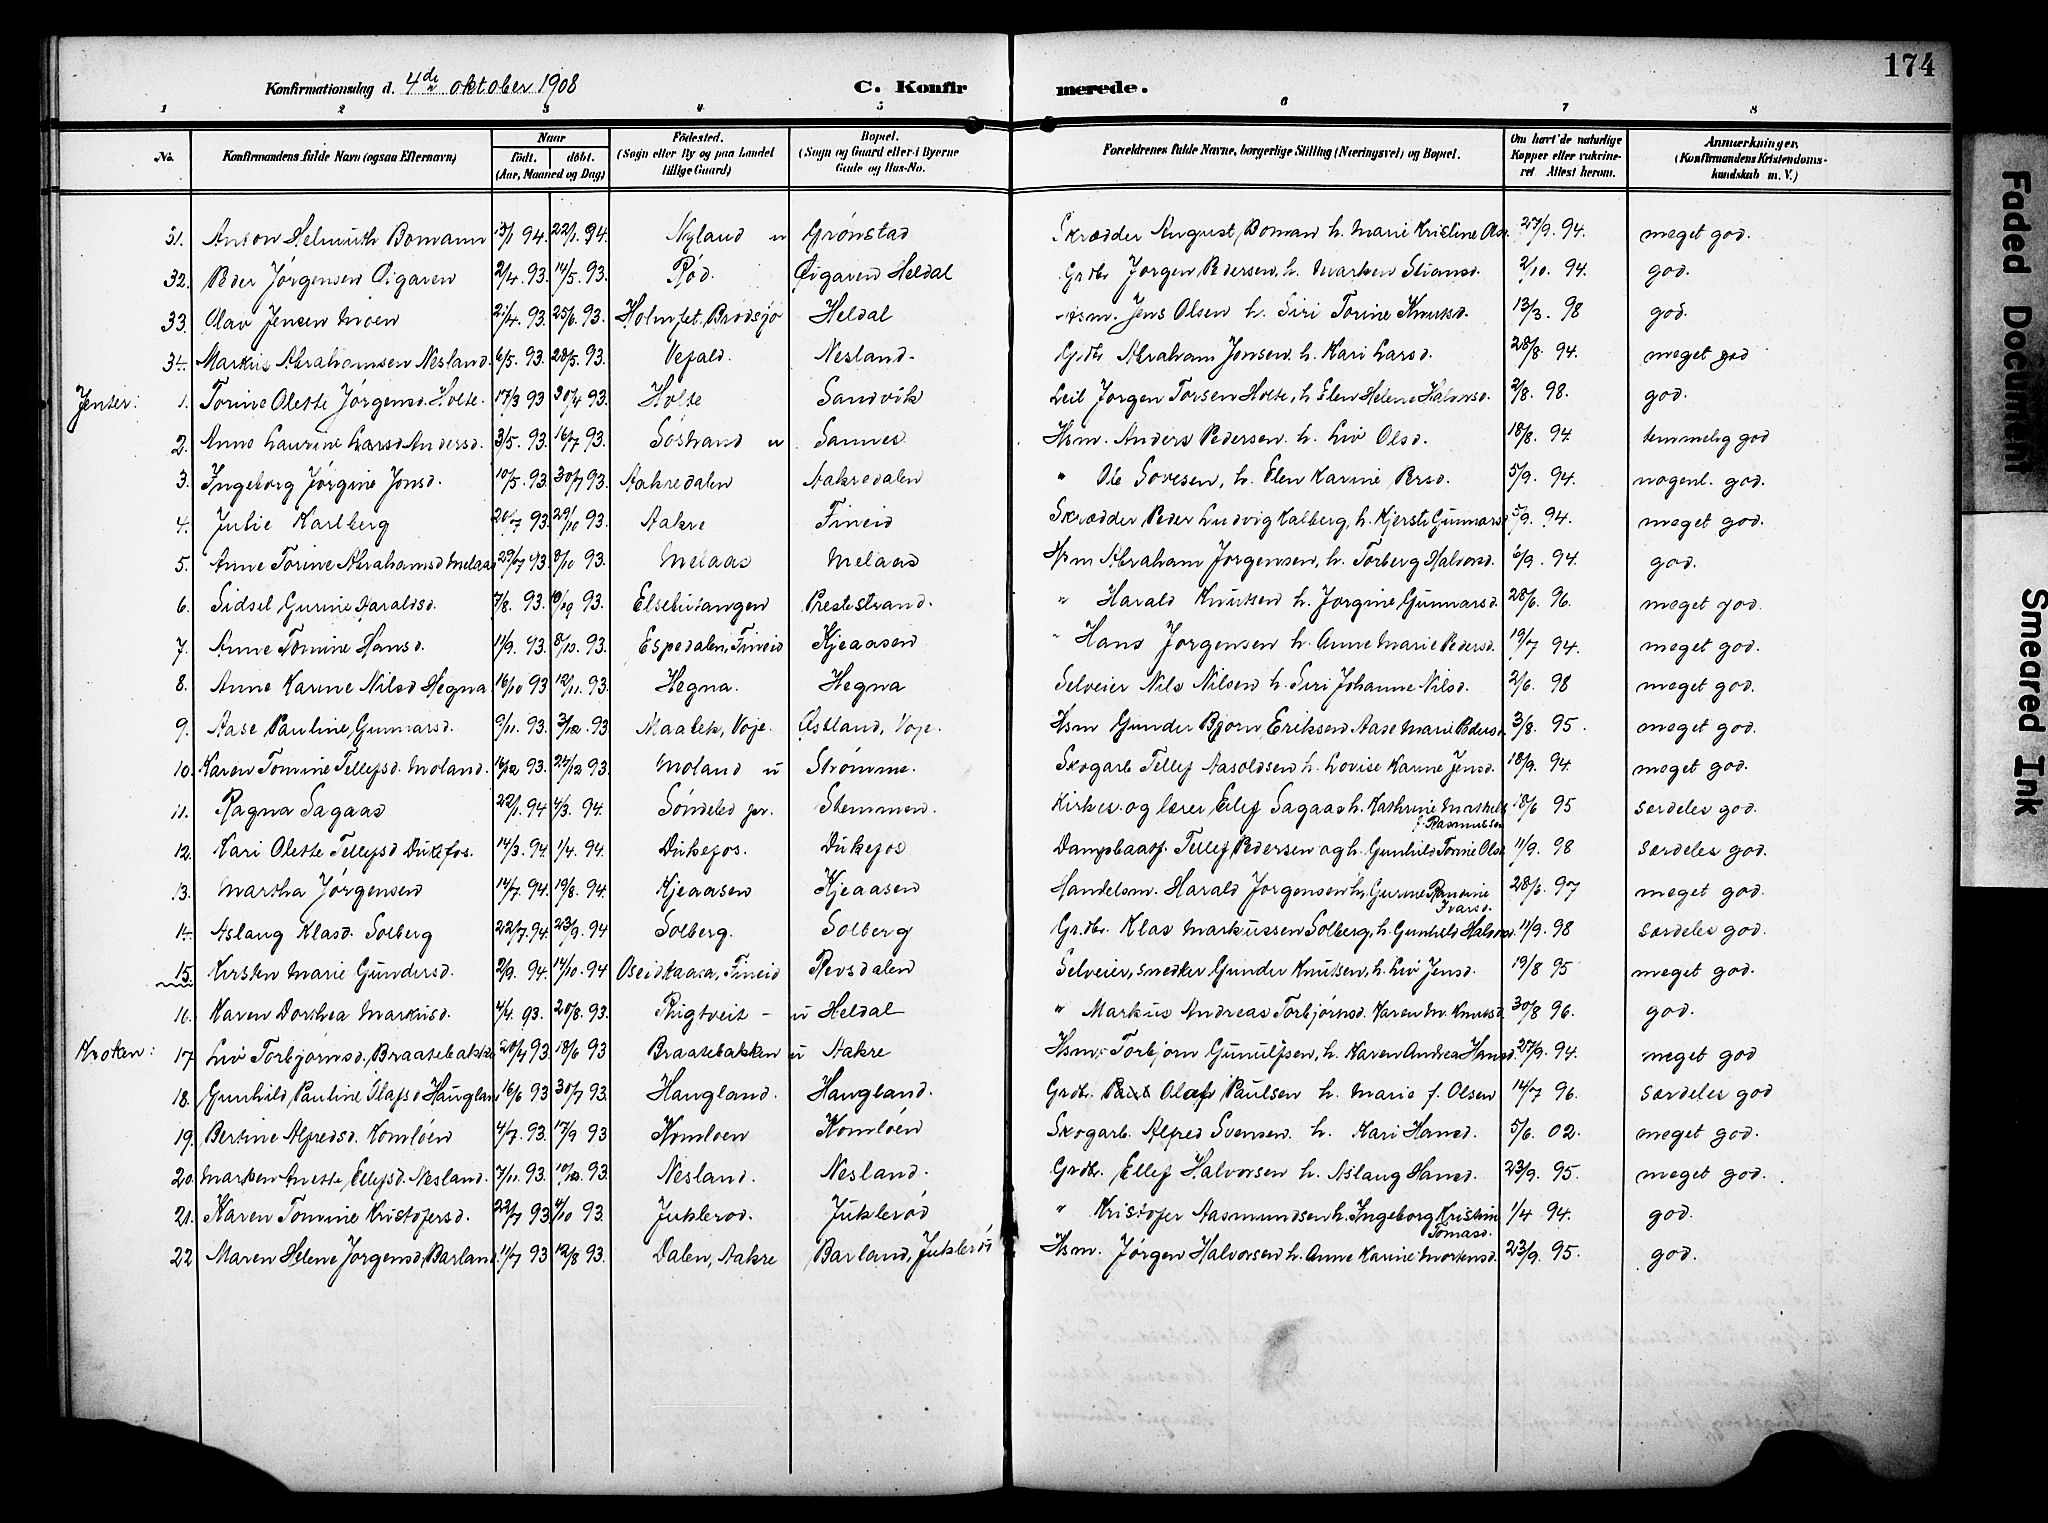 174
Konfirmationsdag d. 4de oktober 1908 C. Konfir merede.
1 2 3 4 5 6 7 8
No. Konfirmandens fulde Navn (ogsaa Efternavn) Naar födt. döbt. (Aar, Maaned og Dag) Födested. (Sogn eller By og paa Landet tillige Gaard) Bopæl. (Sogn og Gaard eller i Byerne Gade og Hus-No. Forældrenes fulde Navne, borgerlige Stilling (Næringsvei) og Bopæl. Om havt de naturlige Kopper eller vakcineret Attest herom. Anmærkninger. (Konfirmandens Kristendomskundskab m. V.)
31. Anton Helmuth Bomann 13/1 94. 22/1. 94. Nyland u Grönstad Skrædder August Boman h. Marie Kristine Ols. 27/9. 94. meget god.
32. Peder Jörgensen Öigaren 2/4. 93. 14/5. 93. Röd. Öigaren Heldal Grdbr. Jörgen Pedersen, h. Marken Stiansd. 2/10. 94. god.
33. Olav Jensen Moen 21/4. 93. 25/6. 93. Holmfet. Brödsjö Heldal Hsm. Jens Olsen h. Siri Torine Knutsd. 13/3. 98 god.
34. Markus Abrahamsen Nesland. 6/5. 93. 28/5. 93. Vefald. Nesland. Grdbr. Abraham Jonsen h. Kari Larsd. 28/8. 94. meget god
Jenter: 1. Torine Olette Jörgensd. Holte. 17/3 93 30/4 93. Holte Sandvik Leil Jörgen Torsen Holte, h Elen Helene Halvorsd. 2/8. 98. god.
2. Anne Laurine Larsd Andersd. 3/5. 93. 16/7 93. Söstrand u Sannes Hsm. Anders Pedersen. h. Liv Olsd. 18/8. 94. temmelig god
3. Ingeborg Jörgine Jonsd. 10/5. 93. 30/7 93. Aakredalen Aakredalen " Ole Sovesen, h. Elen Karine Persd. 5/9. 94. nogenl. god.
4. Julie Karlberg 20/7 93. 29/10 93. Aakre Fineid Skrædder Peder Ludvig Kalberg, h. Kjersti Gunnarsd 5/9. 94. meget god.
5. Anne Torine Abrahamsd Melaas 29/7 93. 8/10 93. Melaas Melaas Hsm Abraham Jörgensen, h. Torberg Halvorsd. 6/9. 94. god.
6. Sidsel Gurine Haraldsd. 7/8. 93. 93. Elsebutangen Prestestrand. " Harald Knutsen h. Jörgine Gunnarsd. 28/6. 96. meget god.
7. Anne Tomine Hansd. 11/9. 93. 8/10. 93. Espedalen, Fineid Kjeaasen " Hans Jörgensen h. Anne Marie Pedersd. 19/7 94. meget god.
8. Anne Karine Nilsd Hegna. 16/10 93 12/11. 93. Hegna. Hegna Selveier Nils Nilsen h. Siri Johanne Nilsd. 2/6. 98 meget god.
9. Aase Pauline Gunnarsd. 9/11. 93. 3/12. 93 Maalek, Voje. Östland, Voje. Hsm Gunder Björn Eriksen Aase Marie Pedersd 3/8. 95. meget god.
10. Karen Tomine Tellefsd. Moland. 16/12 93. 27/12 93. Moland u Strömme. Skogarb Tellef Aasoldsen h. Lovise Karine Jensd. 18/9. 94. meget god.
11. Ragna Sagaas 22/1. 94 4/3. 94. Söndeled pr. Stemmen. Kirkes. og lærer Ellef Sagaas h. Kathrine Mathilde f. Rasmussen 18/6 95 særdeles god.
12. Kari Olette Tellefsd Dukefos. 14/3. 94. 1/4. 94. Dukefos. Dukefos Dampbaasf. Tellef Pedersen og h. Gunhild Tomine Olsd 11/9. 98 særdeles god.
13. Martha Jörgensen 14/7. 94. 19/8. 94. Kjeaasen Kjeaasen Handelsm. Harald Jörgensen h. Gurine Pandine Ivarsd. 28/6. 97 meget god.
14. Aslaug Klasd. Solberg 22/7. 94. 23/9. 94 Solberg. Solberg Grdbr. Klas Markussen Solberg, h. Gunhild Halvorsd 11/9. 98 særdeles god.
15. Kirsten Marie Gundersd. 2/9. 94. 14/10. 94 Oseidkaasa, Fineid Revsdalen Selveier, snedker Gunder Knutsen, h. Liv Jensd. 19/8 95 meget god.
16. Karen Dorthea Markusd. 4/4. 93. 20/8. 93. Rugtveit - u Heldal " Markus Andreas Torbjörnsd. Karen M. Knutsd 30/8 96. god.
Kroken: 17. Liv Torbjörnsd, Braatebakken 20/4 93 18/6 93 Braatebakken u Aakre Hsm. Torbjörn Gunulfsen, h. Karen Andrea Hansd. 27/9. 94. meget god
18. Gunhild Pauline Olafsd Haugland 16/6 93 30/7 93. Haugland. Haugland. Grdbr. Olaf Paulsen h. Marie f. Olsen 14/7 96. særdeles god
19. Bertine Alfredsd. Komlöen 4/7. 93. 17/9 93 Komloen Komlöen Skogarb. Alfred Svensen. h. Kari Hansd. 5/6. 02. meget god.
20. Marken Anette Ellefsd. Nesland. 7/11. 93. 10/12. 93. Nesland. Nesland. Grdbr. Ellef Halvorsen h. Aslaug Hansd. 23/9. 95. meget god.
21. Karen Tomine Kristofersd. 22/7 93 93. Juklerod. Juklerød " Kristofer Aasmundsen h. Ingeborg Kristine Tomasd. 1/4 94. god.
22 Maren Helene Jörgensd, Barland. 11/7 93 12/8 93. Dalen, Aakre Barland, Juklerød Hsm. Jörgen Halvorsen h. Anne Karine Mortensd. 23/9. 95. god.
Faded Document
Smeared Ink